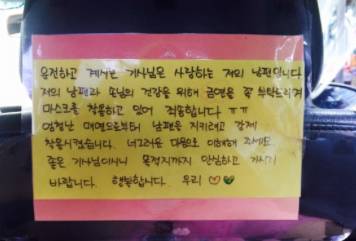 운전하고 계시는 기사님은 사랑하는 저의 남편입니다
저의 남편과 손님의 건강을 위해 금연을 꼭 부탁드리며
마스크를 착용하고 있어 죄송합니다 ㅠㅠ
엄청난 매연으로부터 남편을 지키려고 강제
착용시켰습니다. 너그러운 마음으로 이해해 주세요.
좋은 기사님이시니 목적지까지 안심하고 가시기
바랍니다. 행복합니다. 우리